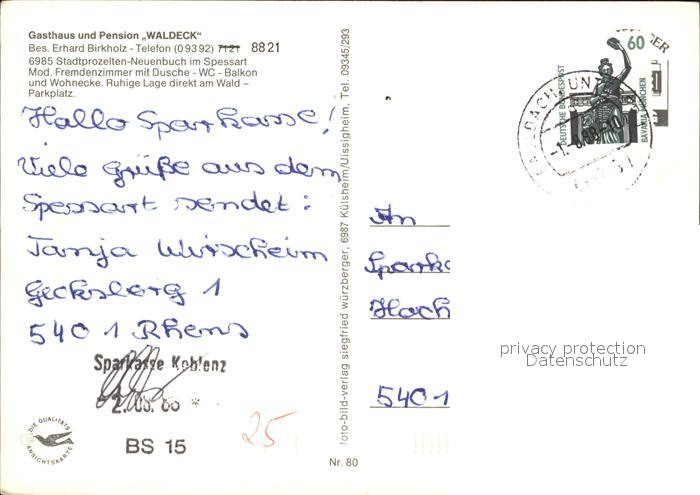 Gasthaus und Pension „WALDECK“
Bes. Erhard Birkholz - Telefon (0 93 92) 7121 8821
6985 Stadtprozelten-Neuenbuch im Spessart
Mod. Fremdenzimmer mit Dusche - WC - Balkon
und Wohnecke. Ruhige Lage direkt am Wald –
Parkplatz.
Hallo Sparkasse!
Viele Grüße aus dem
Spessart sendet:
Tanja
Gecksberg 1
5401 Rhens
Sparkasse Koblenz
BS 15
25
DIE QUALITÄTS
ANSICHTSKARTE
foto-bild-verlag siegfried würzberger, 6987 Külsheim/Uissigheim, Tel. 09345/293
Nr. 80
60
DEUTSCHE BUNDESPOST
BAVARIA MÜNCHEN
An
Spark
Hach
5401
privacy protection
Datenschutz